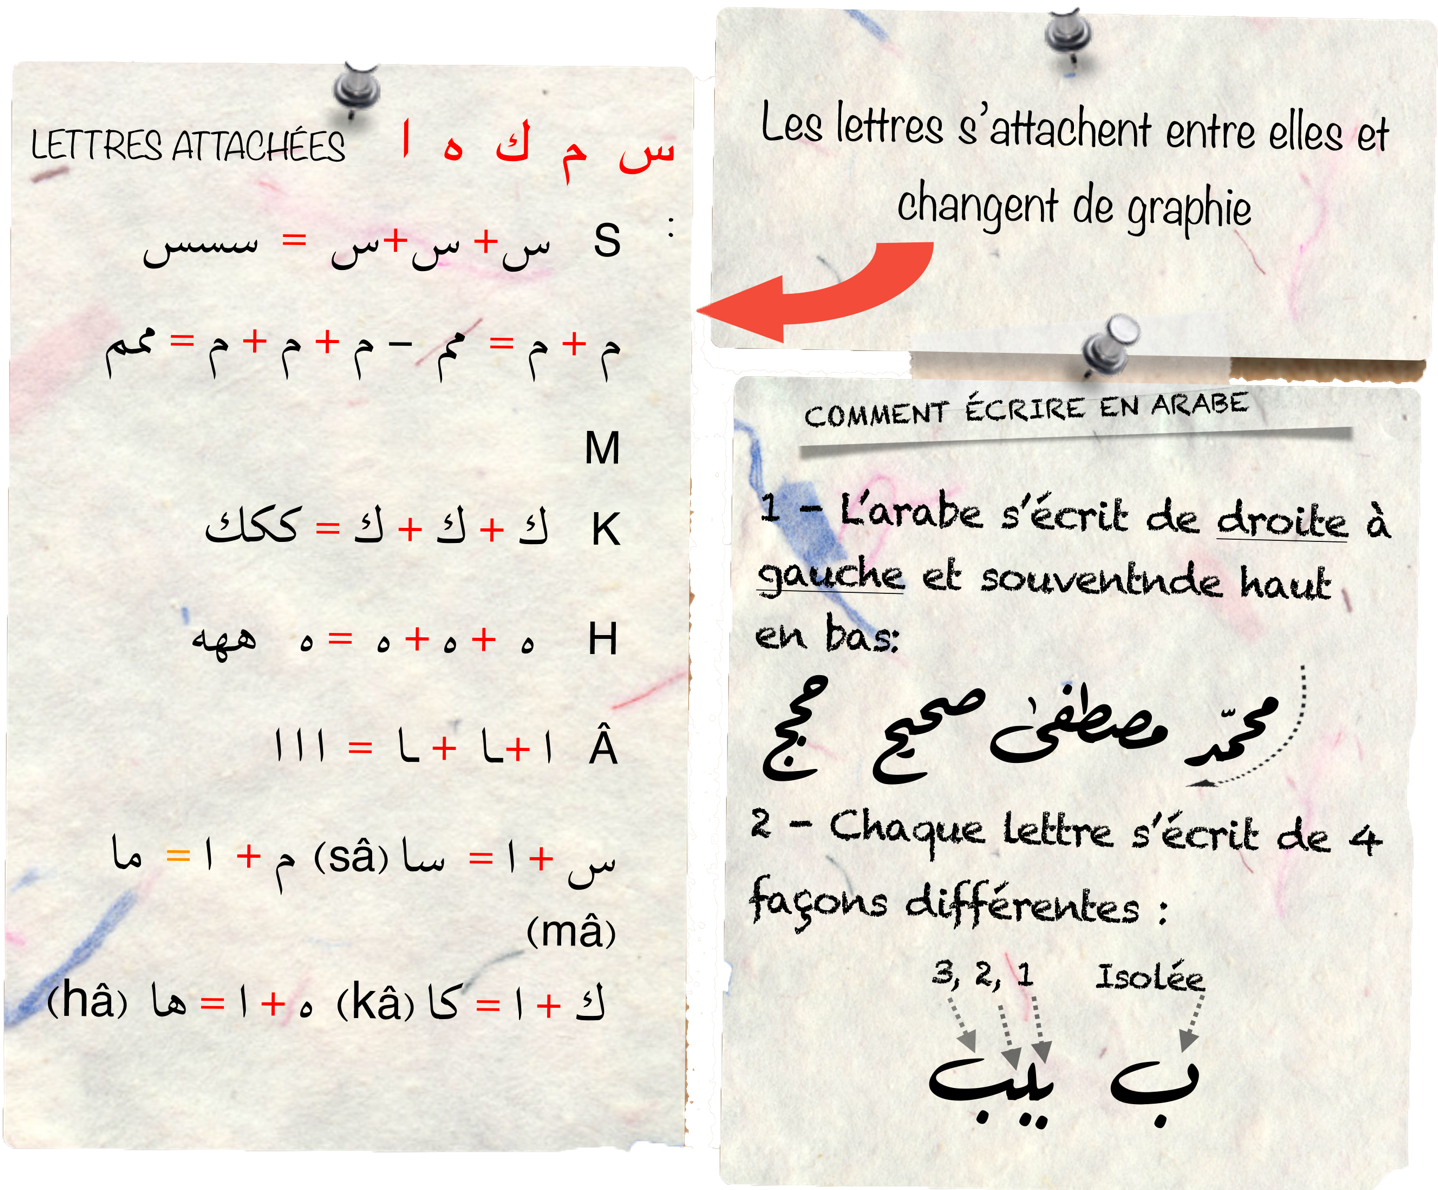 LETTRES ATTACHÉES س م ك ه ا
:
S س + س + س = سسس
م + م = مم – م + م + م = ممم
M
K ك + ك + ك = ككك
H ه + ه + ه = ه ههه
Â ا + ـا + ـا = ا ا ا
س + ا = سا (sâ) م + ا = ما
(mâ)
ك + ا = كا (kâ) ه + ا = ها (hâ)
Les lettres s'attachent entre elles et
changent de graphie
COMMENT ÉCRIRE EN ARABE
1 - L'arabe s'écrit de droite à
gauche et souventnde haut
en bas:
محمّد مصطفىٰ صحيح حجج
2 - Chaque lettre s'écrit de 4
façons différentes :
3, 2, 1 Isolée
ب ببب